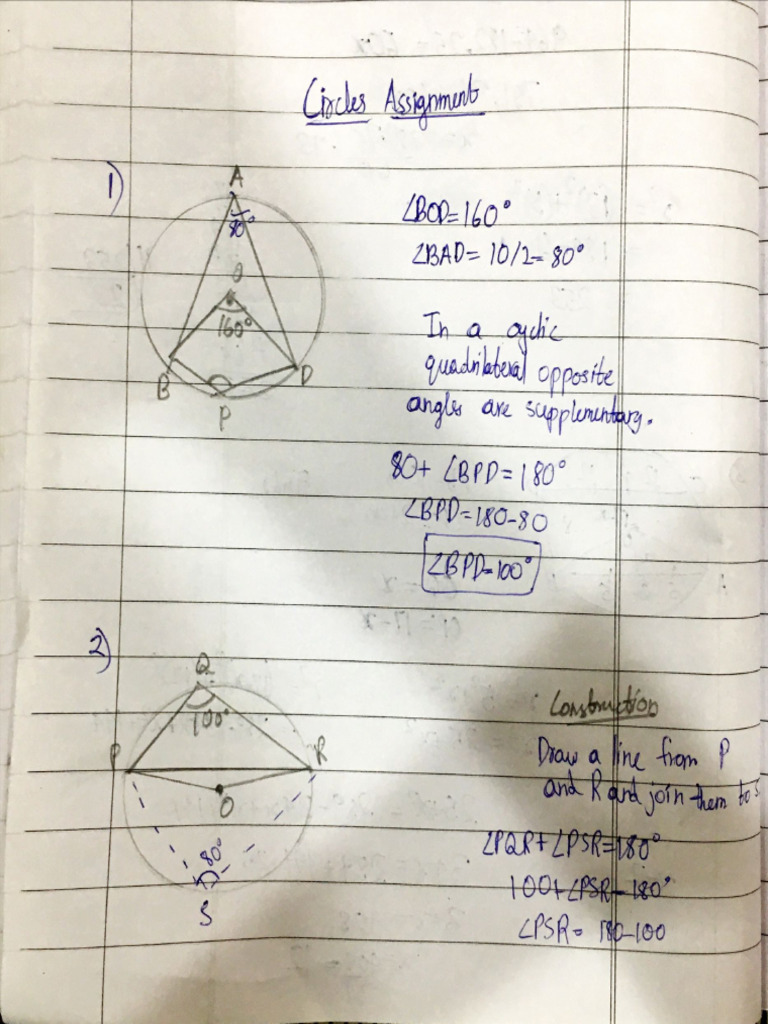 Circles Assignment
1)
A
80°
O
160°
B
D
P
∠BOD=160°
∠BAD= 10/2= 80°
In a cyclic
quadrilateral opposite
angles are supplementary.
80+ ∠BPD=180°
∠BPD=180-80
∠BPD=100°
2)
Q
100°
P
R
O
80°
S
Construction
Draw a line from P
and R and join them to S
∠PQR+∠PSR=180°
100+∠PSR=180°
∠PSR= 180-100